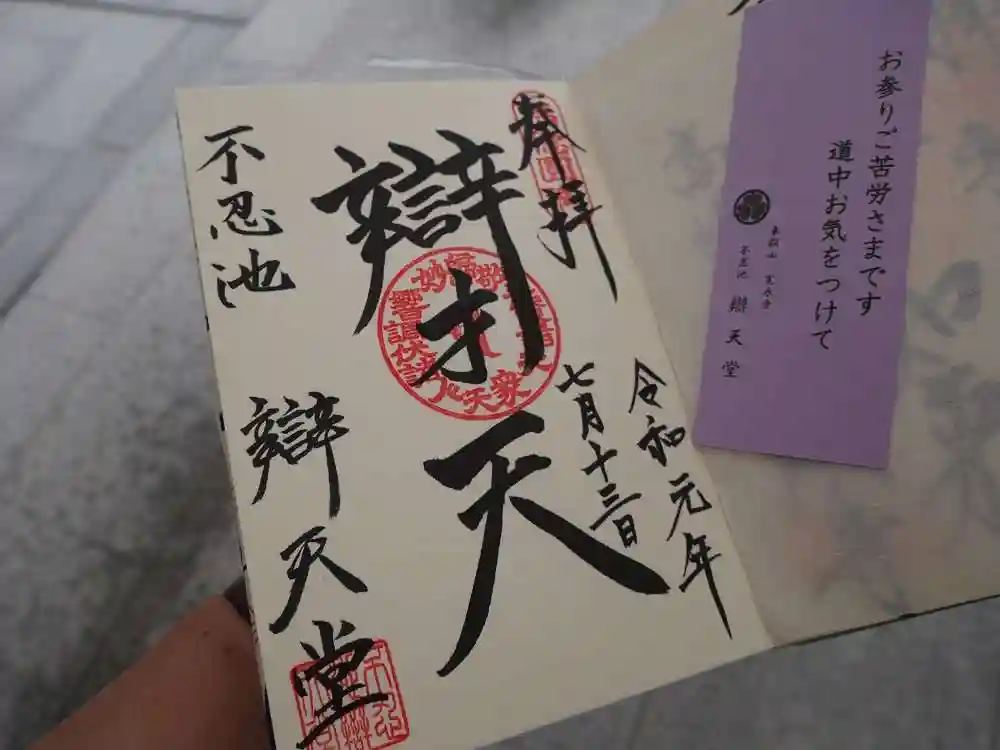 奉拝
令和元年
七月十三日
辯才天
不忍池
辯天堂
お参りご苦労さまです
道中お気をつけて
東叡山 寛永寺
不忍池 辯天堂